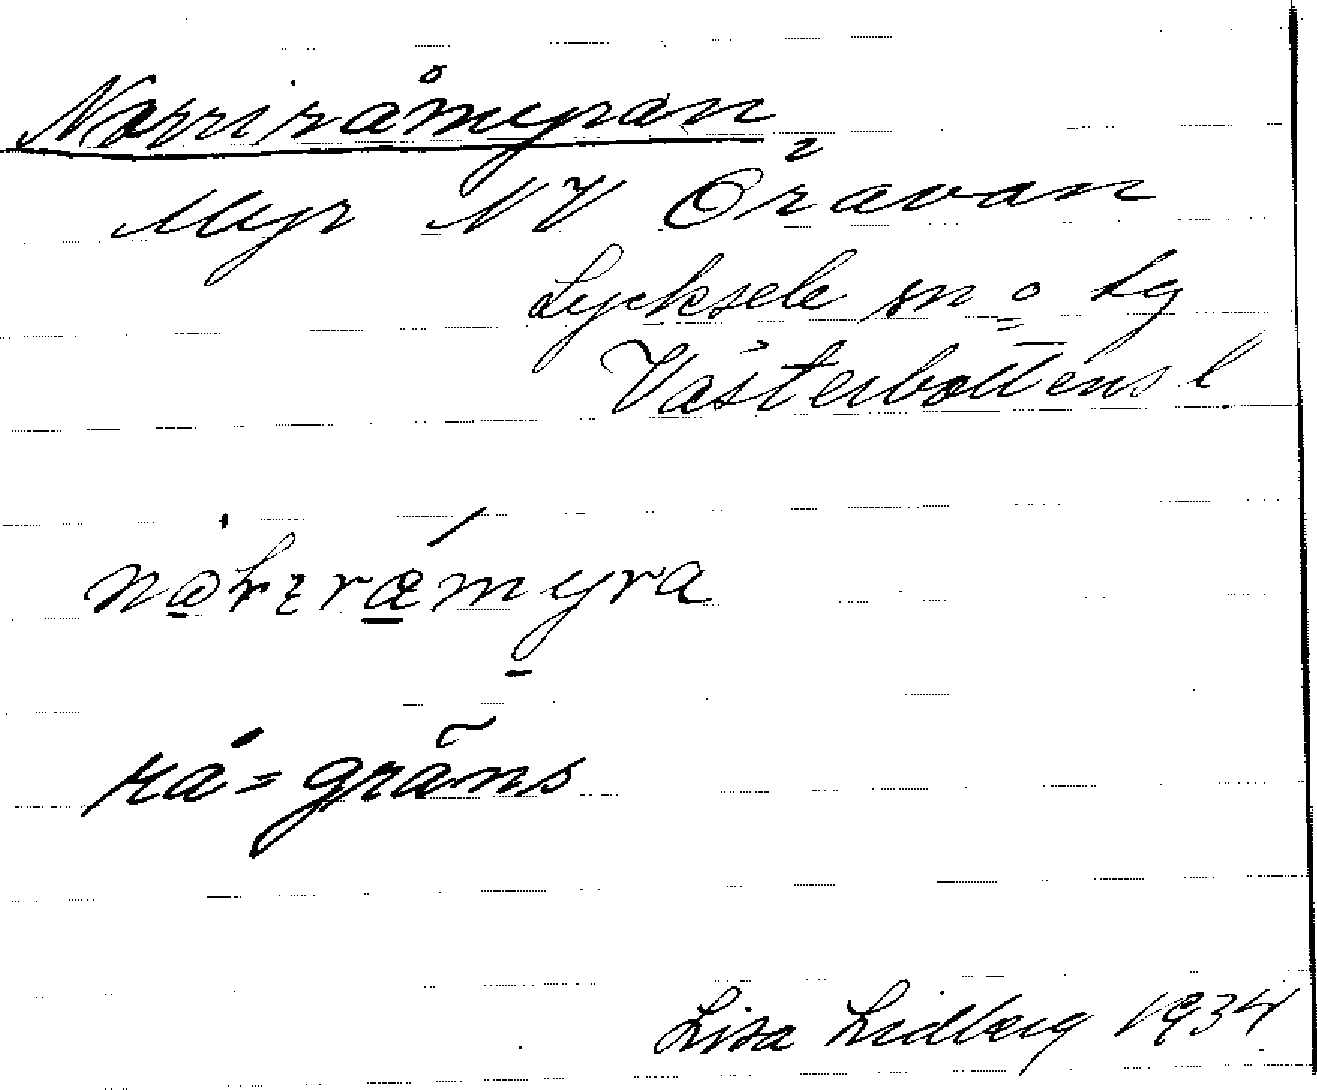 Norriråmyran
Myr NV Öravan
Lycksele sn o lg
Västerbottens l
rå = gräns
Lisa Lidberg 1934